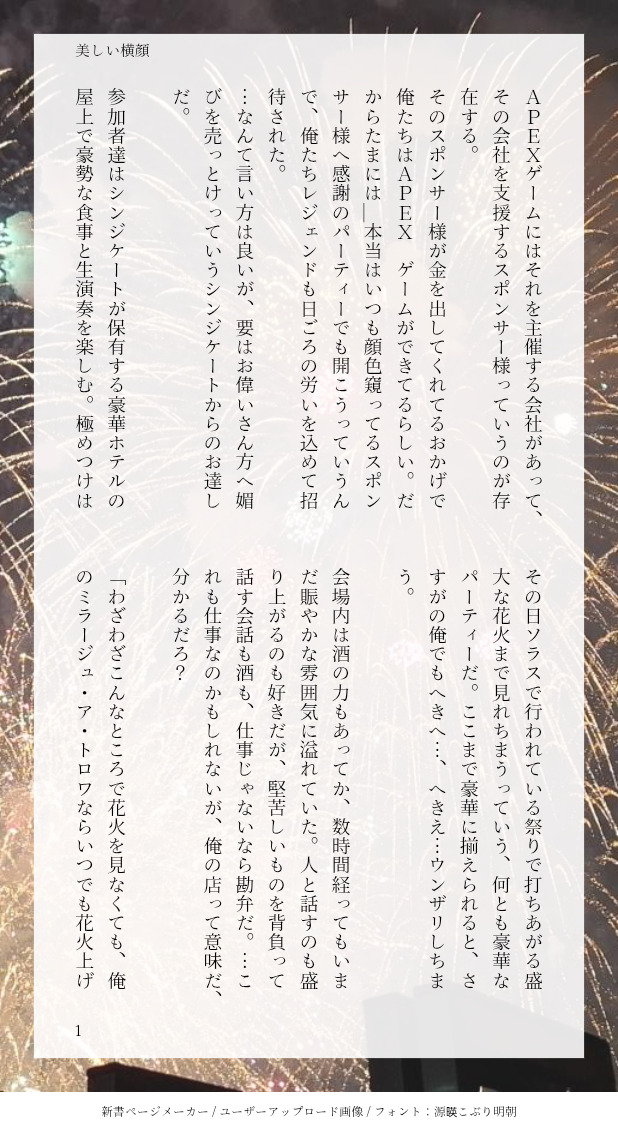 美しい横顔
ＡＰＥＸゲームにはそれを主催する会社があって、
その会社を支援するスポンサー様っていうのが存
在する。
そのスポンサー様が金を出してくれてるおかげで
俺たちはＡＰＥＸ　ゲームができてるらしい。だ
からたまには＿本当はいつも顔色窺ってるスポン
サー様へ感謝のパーティーでも開こうっていうん
で、俺たちレジェンドも日ごろの労いを込めて招
待された。
…なんて言い方は良いが、要はお偉いさん方へ媚
びを売っとけっていうシンジケートからのお達し
だ。
参加者達はシンジケートが保有する豪華ホテルの
屋上で豪勢な食事と生演奏を楽しむ。極めつけは
その日ソラスで行われている祭りで打ちあがる盛
大な花火まで見れちまうっていう、何とも豪華な
パーティーだ。ここまで豪華に揃えられると、さ
すがの俺でもへきへ…、へきえ…ウンザリしちま
う。
会場内は酒の力もあってか、数時間経ってもいま
だ賑やかな雰囲気に溢れていた。人と話すのも盛
り上がるのも好きだが、堅苦しいものを背負って
話す会話も酒も、仕事じゃないなら勘弁だ。…こ
れも仕事なのかもしれないが、俺の店って意味だ、
分かるだろ？
「わざわざこんなところで花火を見なくても、俺
のミラージュ・ア・トロワならいつでも花火上げ
1
新書ページメーカー / ユーザーアップロード画像 / フォント：源暎こぶり明朝